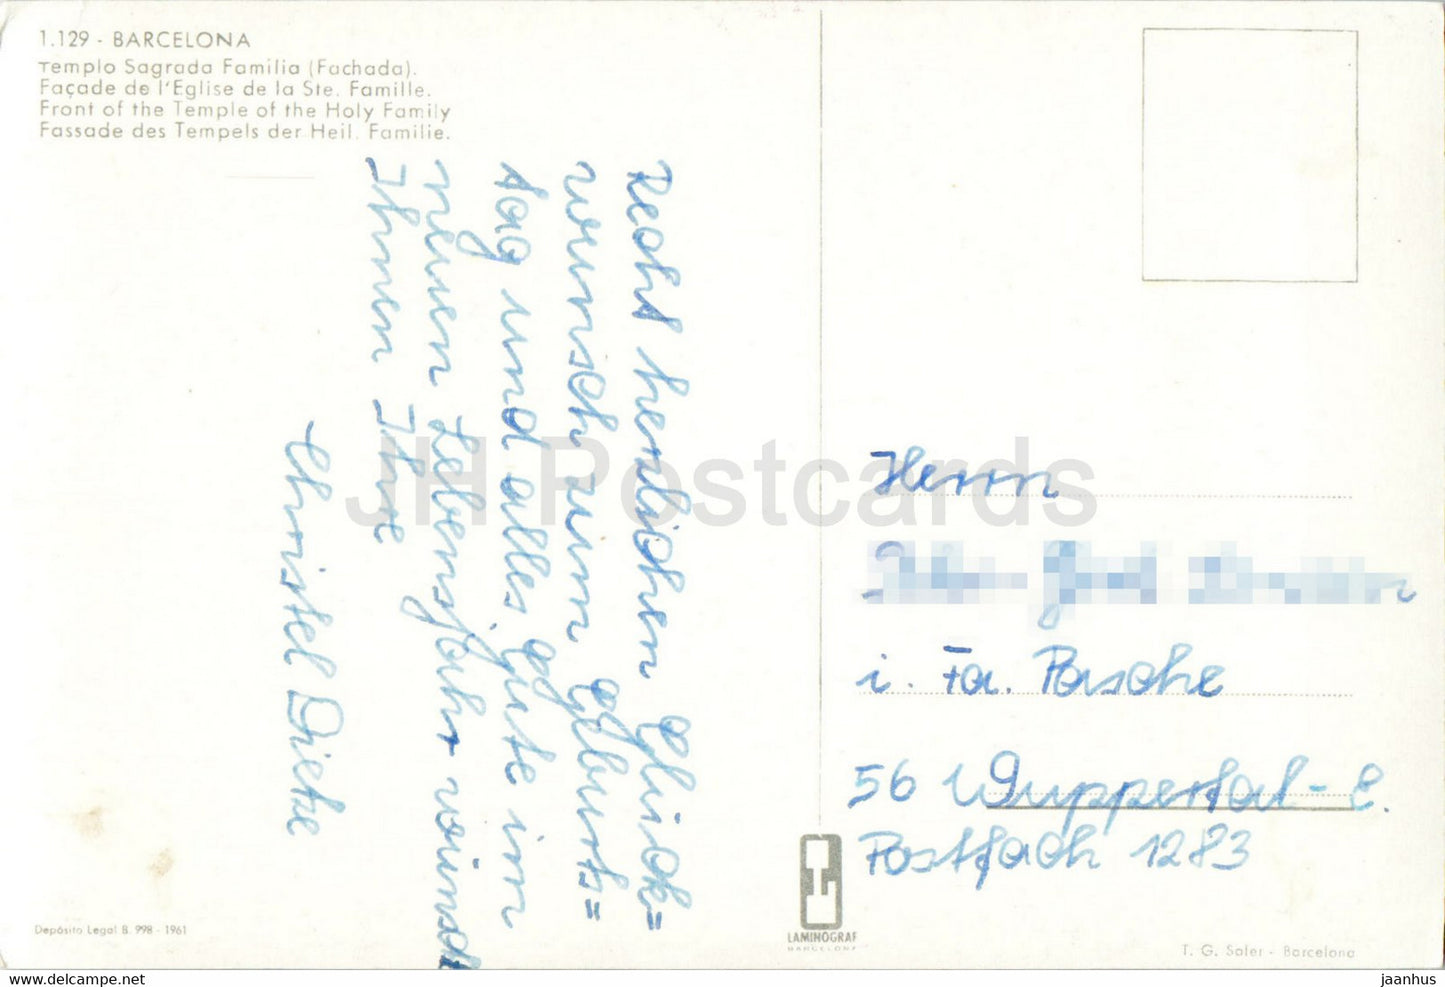 1.129 - BARCELONA
Templo Sagrada Familia (Fachada).
Façade de l'Eglise de la Ste. Famille.
Front of the Temple of the Holy Family
Fassade des Tempels der Heil. Familie.
Recht herzlichen Glück=
wunsch zum Geburts=
tag und alles Gute im
neuen Lebensjahr wünscht
Ihnen Ihre
Christel Dietze
Herrn
i. Fa. Pasche
56 Wuppertal-E.
Postfach 1283
Depósito Legal B. 998 - 1961
LAMINOGRAF
BARCELONA
T. G. Soler - Barcelona
JH Postcards
https://www.delcampe.net
jaanhus